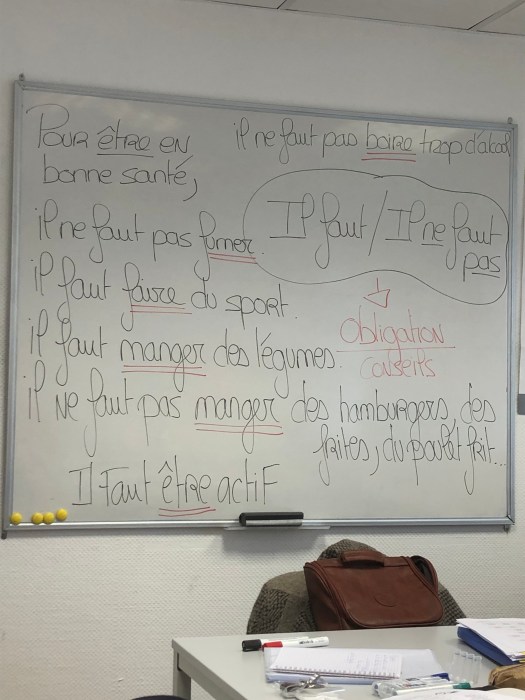 Pour être en
bonne santé,
il ne faut pas boire trop d'alcool
Il faut / Il ne faut
pas
Obligation
conseils
il ne faut pas fumer.
il faut faire du sport.
il faut manger des légumes.
il ne faut pas manger des hamburgers des
frites, du poulet frit...
Il Faut être actif